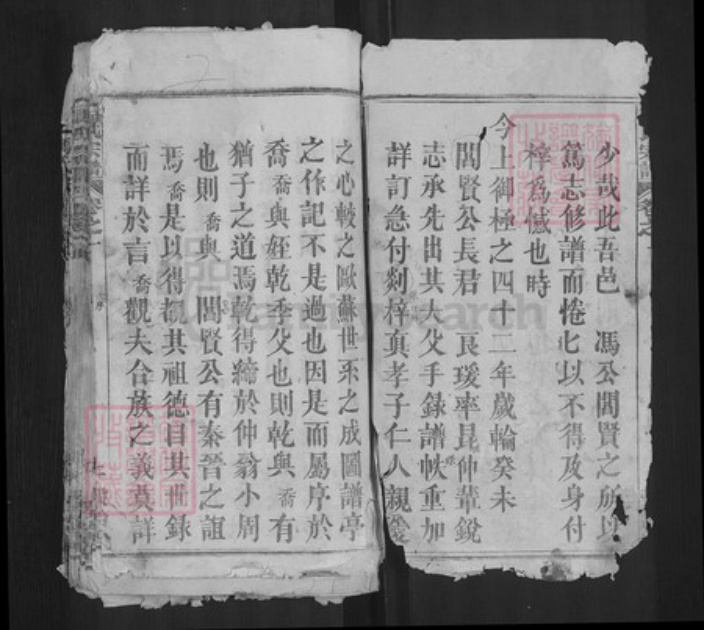 少哉此吾邑　馮公閭賢之所以
篤志修譜而惓匕以不得及身付
梓為憾也時
今上御極之四十二年歲輪癸未
閭賢公長君　瑗率昆仲輩銳
志承先出其大父手錄譜帙重加
詳訂急付剞梓真孝子仁人親愛
之心較之歐蘇世系之成圖譜亭
之作記不是過也因是而屬序於
喬喬與姪乾季父也則乾與喬有
猶子之道焉乾得締於仲翁小周
也則喬與　閭賢公有秦晉之誼
焉喬是以得覩其祖德自其世錄
而詳於言喬觀夫合族之義莫詳